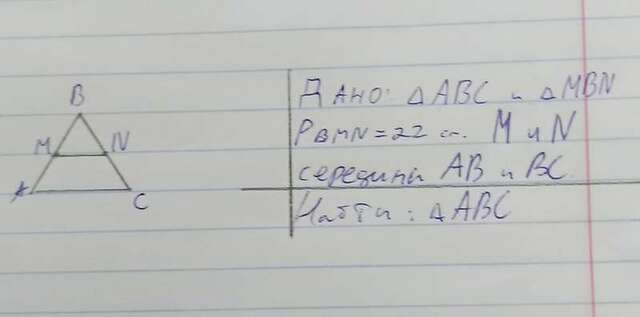 B
M N
A C
Дано: △ABC и △MBN
P BMN = 22 см. M и N
середины AB и BC.
Найти: △ABC